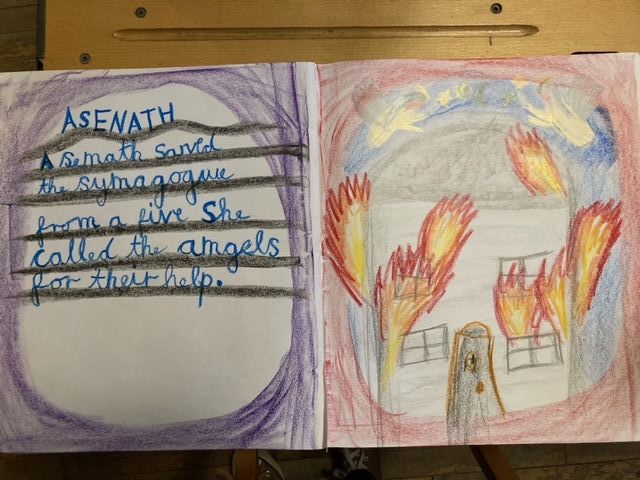 ASENATH
Asemath saved
the symagogue
from a five She
called the amgels
for their help.